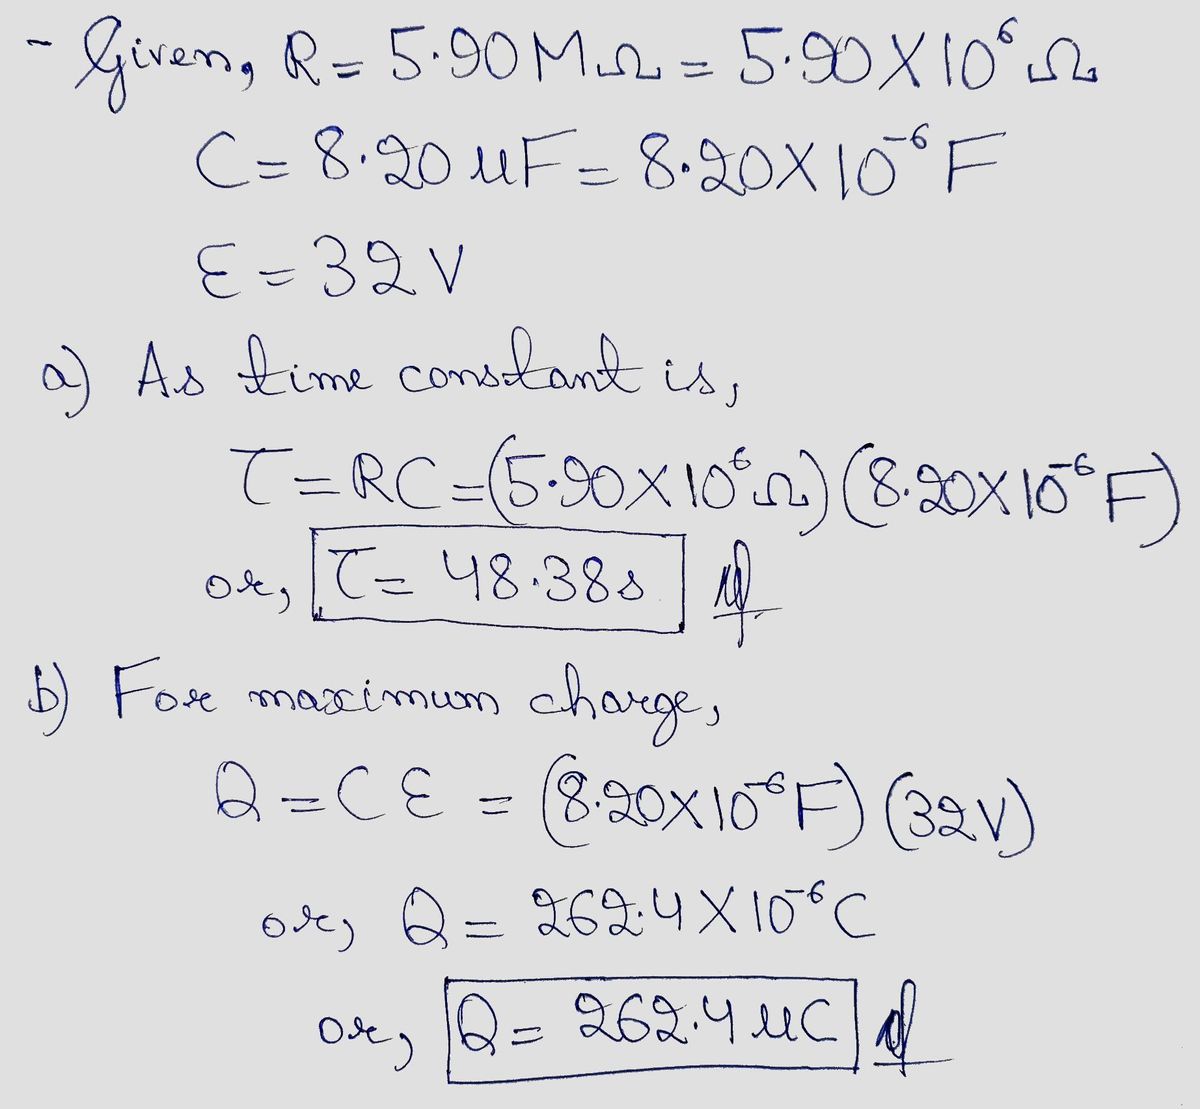 - Given, R = 5.90 MΩ = 5.90 X 10⁶ Ω
C = 8.20 uF = 8.20 X 10⁻⁶ F
Ɛ = 32 V
a) As time constant is,
τ = RC = (5.90 X 10⁶ Ω) (8.20 X 10⁻⁶ F)
or, τ = 48.38 s
b) For maximum charge,
Q = C Ɛ = (8.20 X 10⁻⁶ F) (32 V)
or, Q = 262.4 X 10⁻⁶ C
or, Q = 262.4 uC